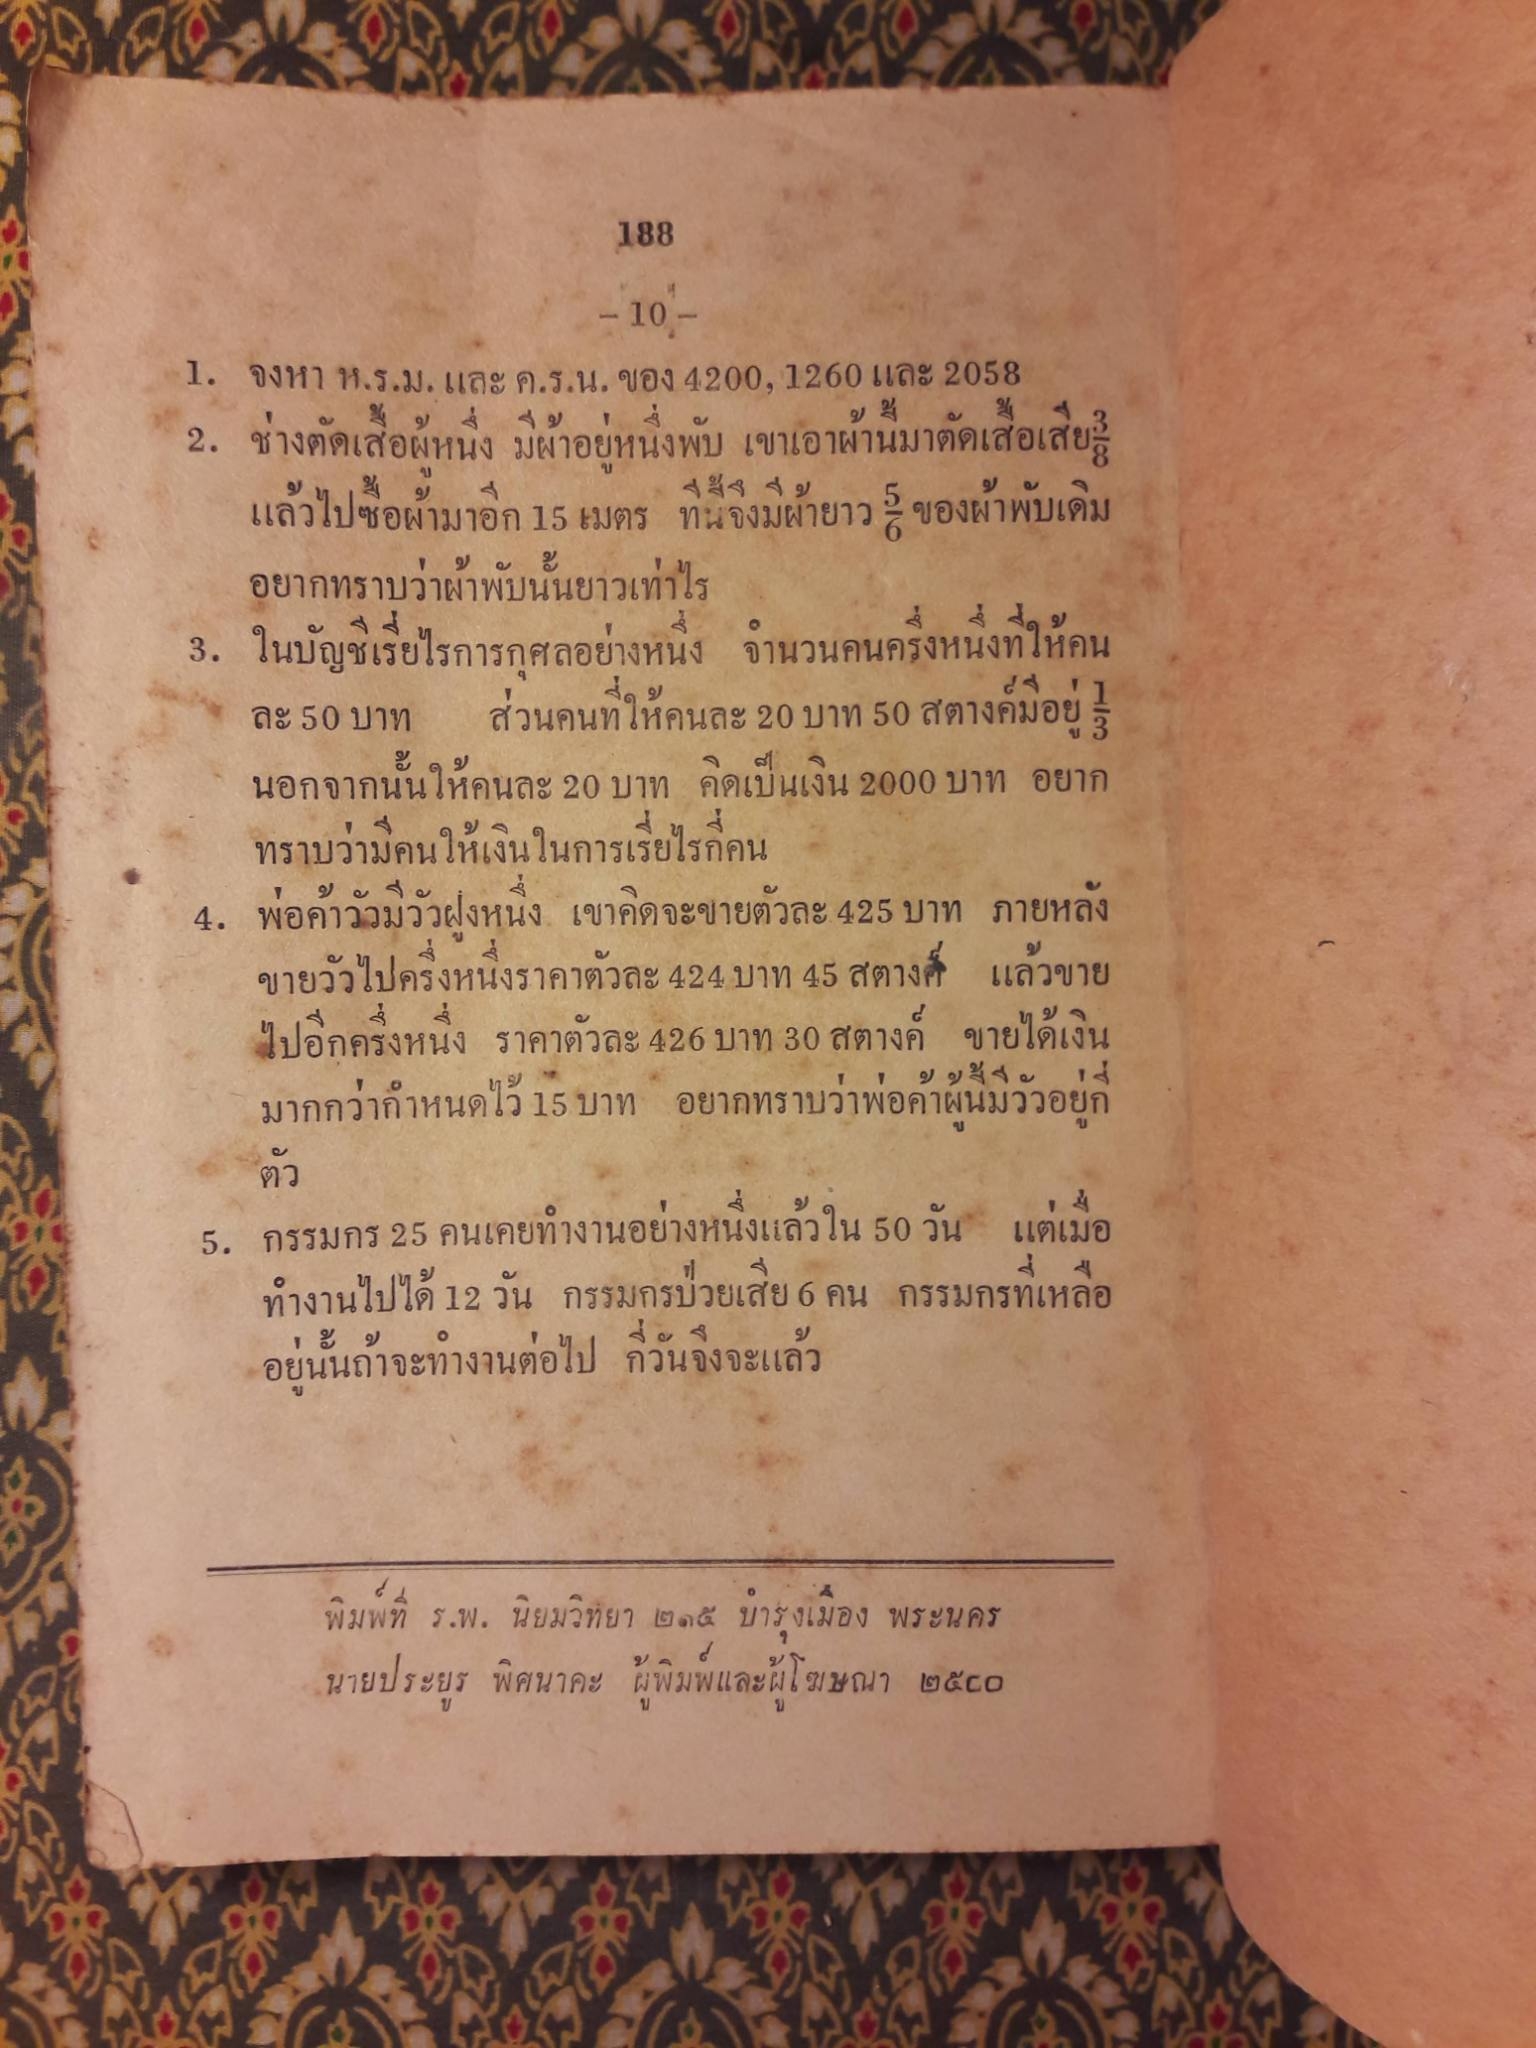 188
– 10 –
1. จงหา ห.ร.ม. และ ค.ร.น. ของ 4200, 1260 และ 2058
2. ช่างตัดเสื้อผู้หนึ่ง มีผ้าอยู่หนึ่งพับ เขาเอาผ้านี้มาตัดเสื้อเสีย 3/8
แล้วไปซื้อผ้ามาอีก 15 เมตร ทีนี้จึงมีผ้ายาว 5/6 ของผ้าพับเดิม
อยากทราบว่าผ้าพับนั้นยาวเท่าไร
3. ในบัญชีเรี่ยไรการกุศลอย่างหนึ่ง จำนวนคนครึ่งหนึ่งที่ให้คน
ละ 50 บาท ส่วนคนที่ให้คนละ 20 บาท 50 สตางค์มีอยู่ 1/3
นอกจากนั้นให้คนละ 20 บาท คิดเป็นเงิน 2000 บาท อยาก
ทราบว่ามีคนให้เงินในการเรี่ยไรกี่คน
4. พ่อค้าวัวมีวัวฝูงหนึ่ง เขาคิดจะขายตัวละ 425 บาท ภายหลัง
ขายวัวไปครึ่งหนึ่งราคาตัวละ 424 บาท 45 สตางค์ แล้วขาย
ไปอีกครึ่งหนึ่ง ราคาตัวละ 426 บาท 30 สตางค์ ขายได้เงิน
มากกว่ากำหนดไว้ 15 บาท อยากทราบว่าพ่อค้าผู้นี้มีวัวอยู่กี่
ตัว
5. กรรมกร 25 คนเคยทำงานอย่างหนึ่งแล้วใน 50 วัน แต่เมื่อ
ทำงานไปได้ 12 วัน กรรมกรป่วยเสีย 6 คน กรรมกรที่เหลือ
อยู่นั้นถ้าจะทำงานต่อไป กี่วันจึงจะแล้ว
พิมพ์ที่ ร.พ. นิยมวิทยา ๒๑๕ บำรุงเมือง พระนคร
นายประยูร พิศนาคะ ผู้พิมพ์และผู้โฆษณา ๒๕๐๐